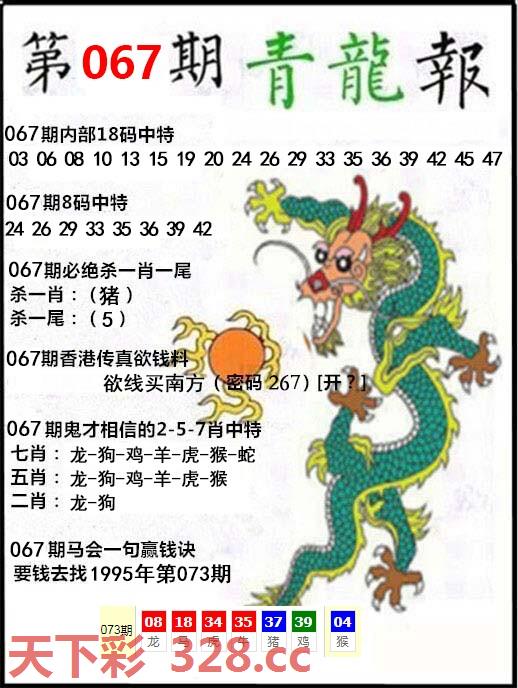 第067期青龍報
067期内部18码中特
03 06 08 10 13 15 19 20 24 26 29 33 35 36 39 42 45 47
067期8码中特
24 26 29 33 35 36 39 42
067期必绝杀一肖一尾
杀一肖：（猪）
杀一尾：（5）
067期香港传真欲钱料
欲线买南方（密码 267）[开？]
067期鬼才相信的2-5-7肖中特
七肖：龙-狗-鸡-羊-虎-猴-蛇
五肖：龙-狗-鸡-羊-虎-猴
二肖：龙-狗
067期马会一句赢钱诀
要钱去找1995年第073期
073期 08 18 34 35 37 39 04
龙 马 虎 牛 猪 鸡 猴
天下彩 328.cc